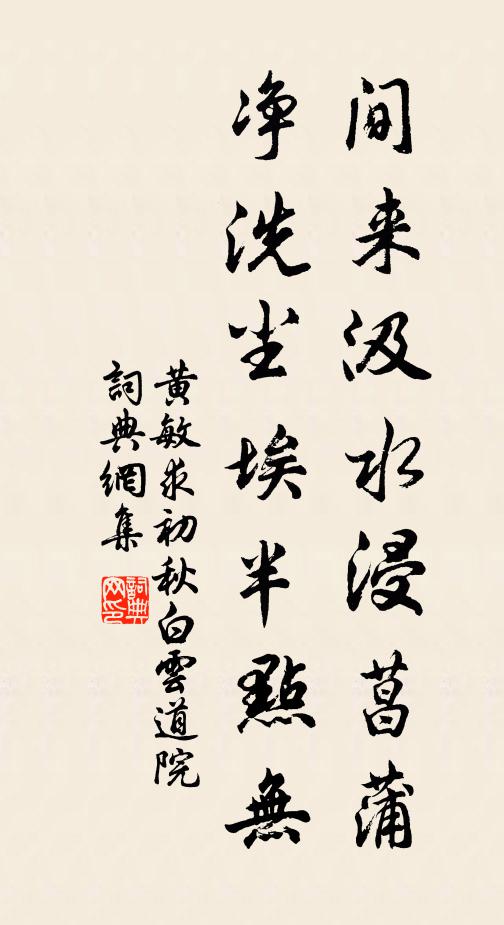 间来汲水浸菖蒲
净洗尘埃半點無
黄敏求初秋白雲道院
詞典網集
詞典网印